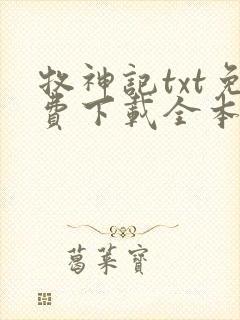 牧神記txt免
費下載全本
葛菜寶